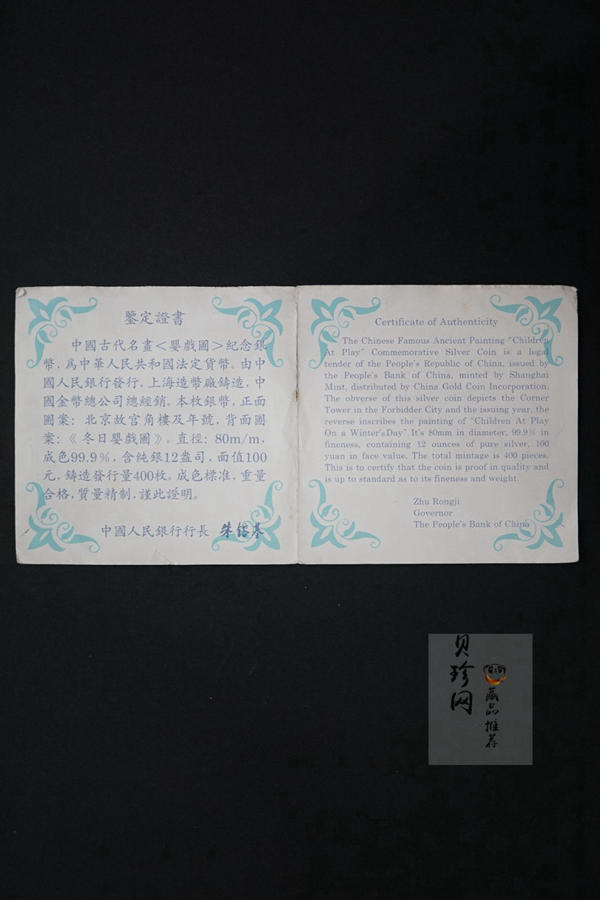 鑒定證書
中國古代名畫＜嬰戲圖＞紀念銀
幣，爲中華人民共和國法定貨幣。由中
國人民銀行發行，上海造幣廠鑄造，中
國金幣總公司總經銷。本枚銀幣，正面
圖案：北京故宮角樓及年號，背面圖
案：《冬日嬰戲圖》。直徑：80m/m，
成色99.9%，含純銀12盎司，面值100
元，鑄造發行量400枚。成色標准，重量
合格，質量精制，謹此證明。
中國人民銀行行長
Certificate of Authenticity
The Chinese Famous Ancient Painting "Children
At Play" Commemorative Silver Coin is a legal
tender of the People's Republic of China, issued by
the People's Bank of China, minted by Shanghai
Mint, distributed by China Gold Coin Incorporation.
The obverse of this silver coin depicts the Corner
Tower in the Forbidder City and the issuing year, the
reverse inscribes the painting of "Children At Play
On a Winter's Day". It's 80mm in diameter, 99.9% in
fineness, containing 12 ounces of pure silver, 100
yuan in face value. The total mintage is 400 pieces.
This is to certify that the coin is proof in quality and
is up to standard as to its fineness and weight.
Zhu Rongji
Governor
The People's Bank of China
贝珍网
藏品推荐